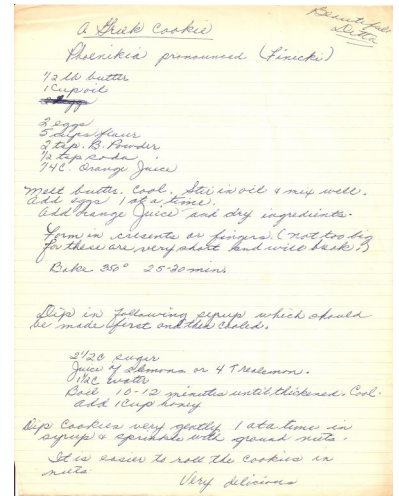 Beautiful
Ditta
A Greek Cookie
Phoenikia pronounced (Finecki)
1/2 lb butter
1 Cup oil
2 eggs
5 cups flour
2 tsp. B. Powder
1/2 tsp soda
1/4 C. Orange Juice
Melt butter. Cool. Stir in oil & mix well.
Add eggs 1 at a time.
Add orange Juice and dry ingredients.
Form in cresents or fingers. (not too big
for these are very short and will break.)
Bake 350° 25-30 mins
Dip in following syrup which should
be made first and then cooled.
2 1/2 C sugar
Juice of 2 lemons or 4 T realemon.
1 1/2 C water
Boil 10-12 minutes until thickened. Cool.
Add 1 Cup honey
Dip Cookies very gently 1 at a time in
syrup & sprinkle with ground nuts.
It is easier to roll the cookies in
nuts
Very delicious